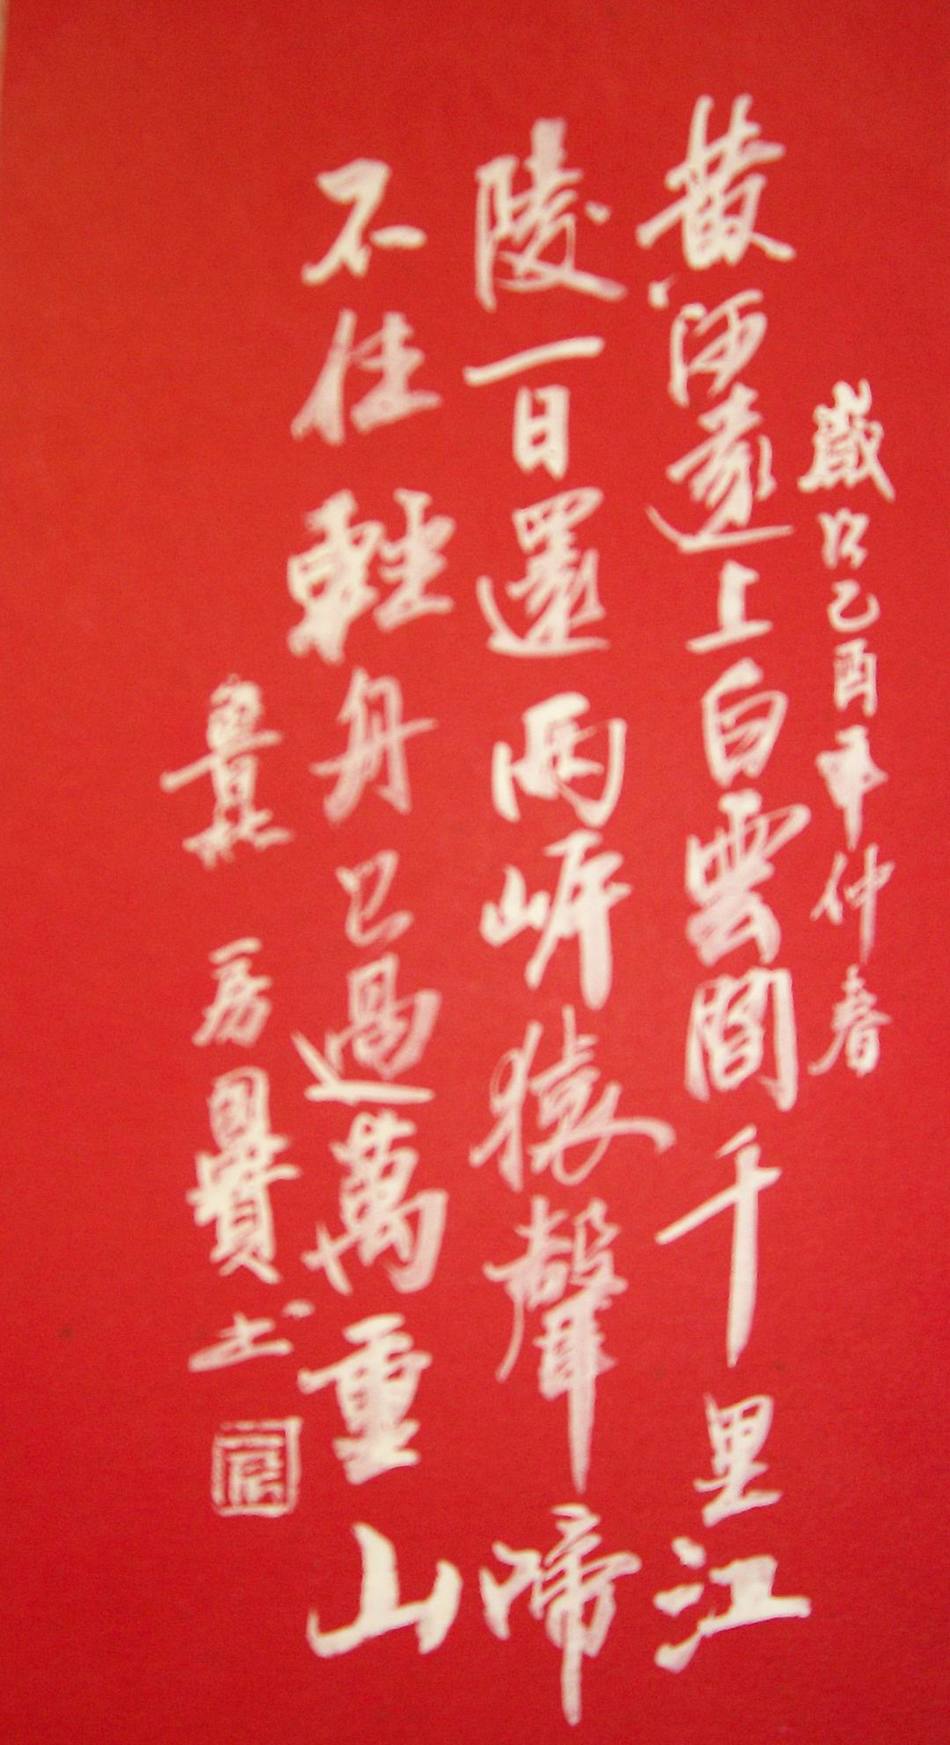 歲次乙酉年仲春
黄河遠上白雲間千里江
陵一日還兩岸猿聲啼
不住輕舟已過萬重山
房 书